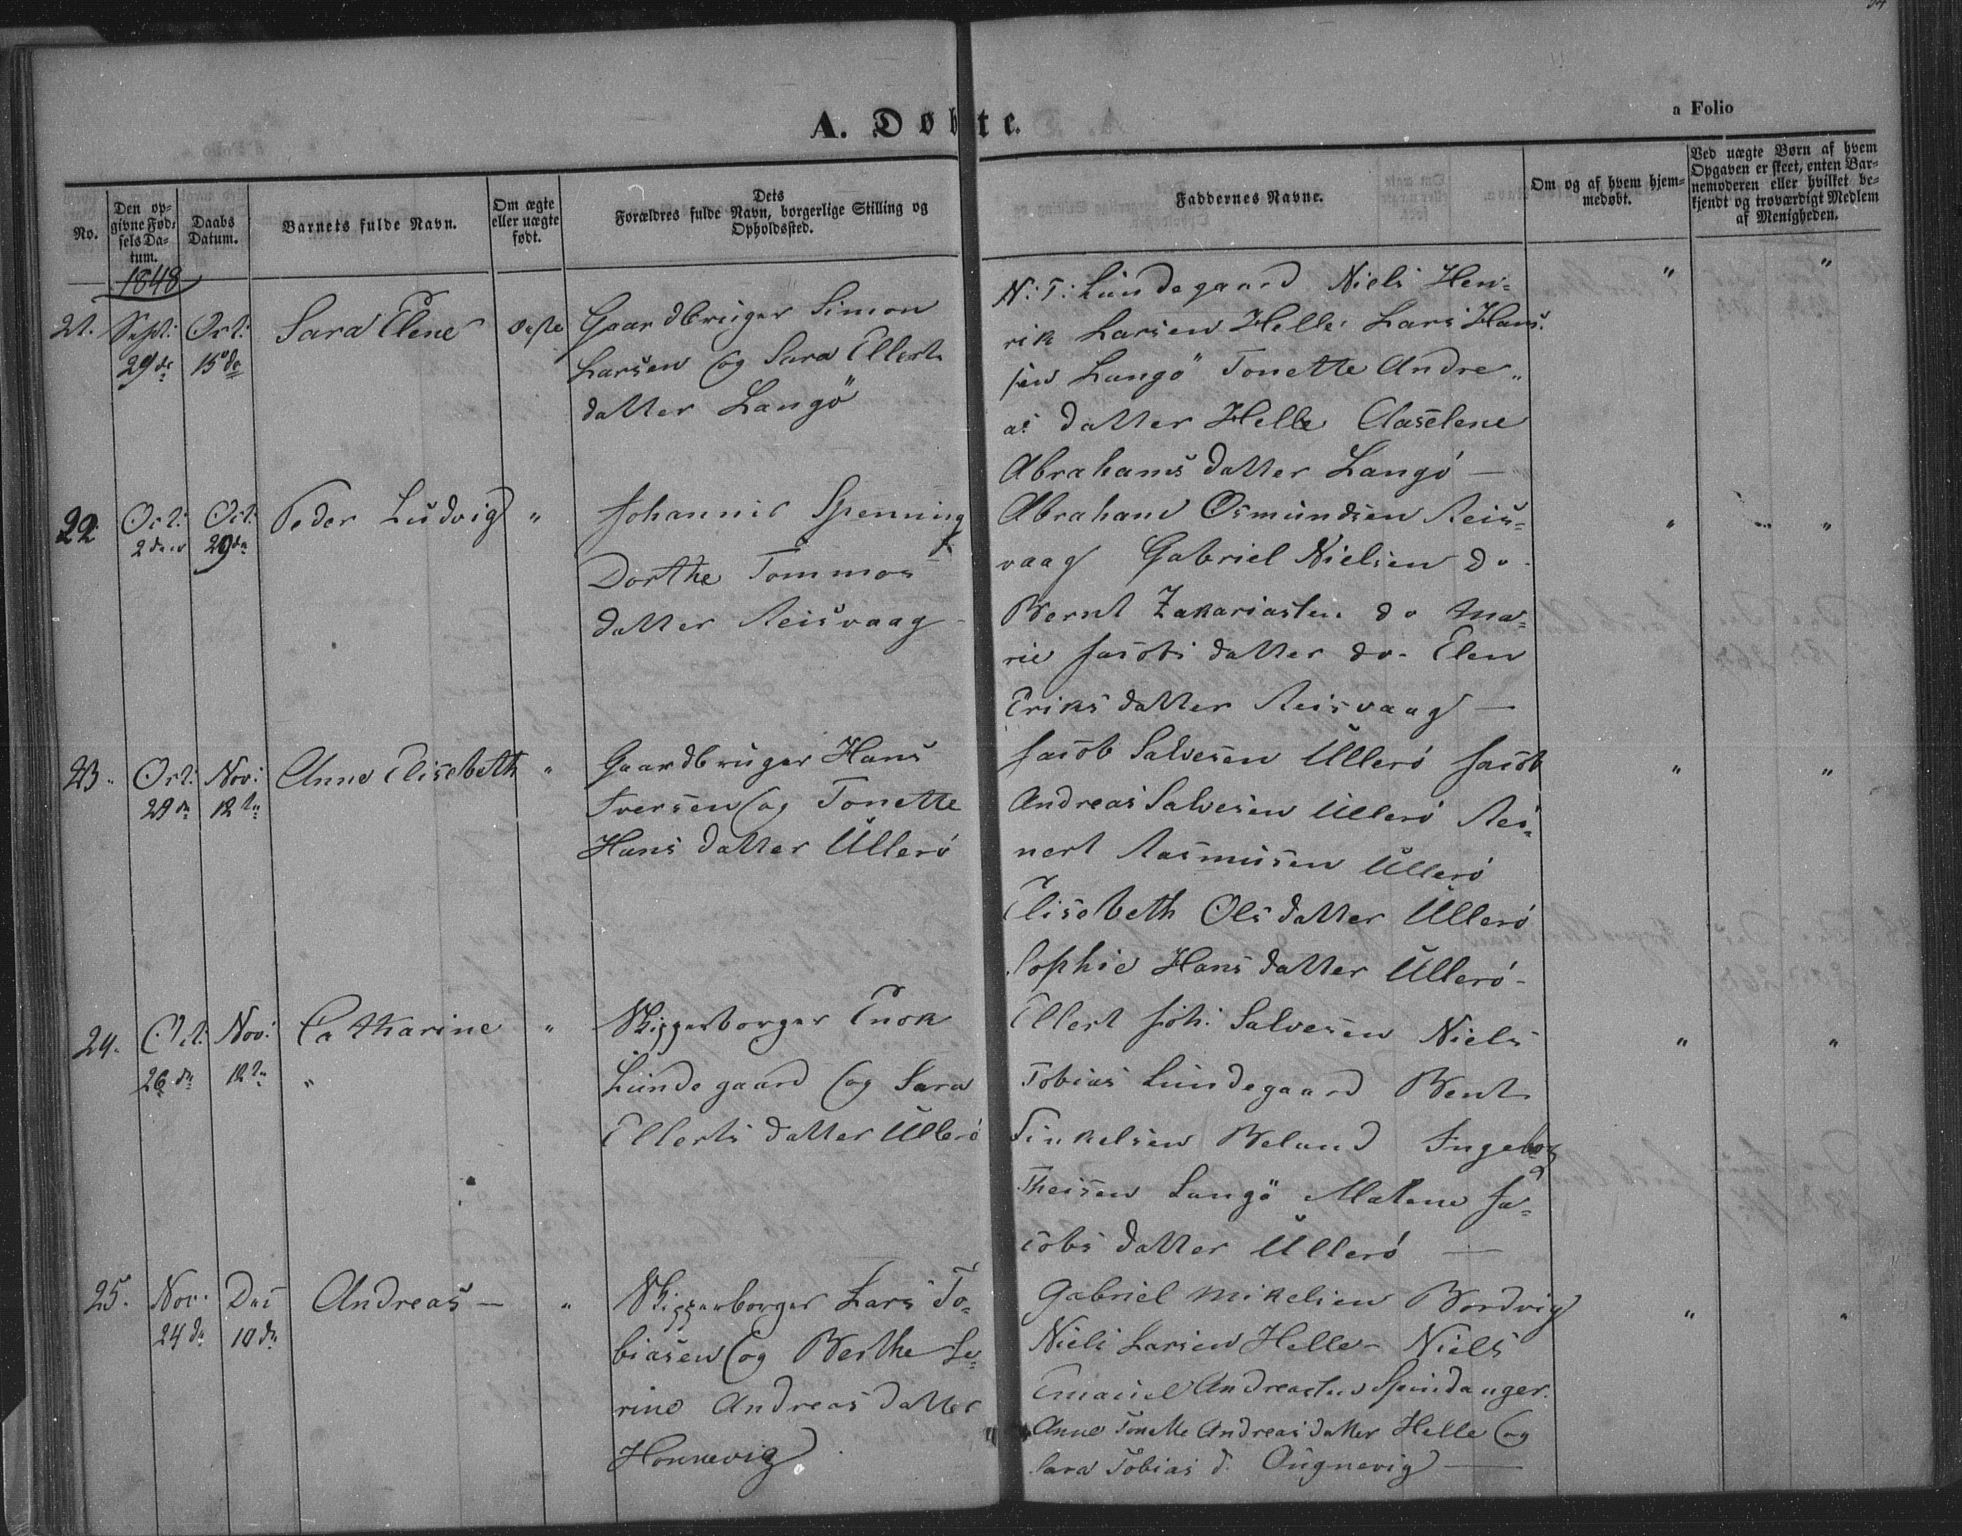 A. Døbte.
a Folio
No.
Den op-
givne Fød-
sels Da-
tum.
Daabs
Datum.
Barnets fulde Navn.
Om ægte
eller uægte
født.
Dets
Forældres fulde Navn, borgerlige Stilling og
Opholdssted.
Faddernes Navne.
Om og af hvem hjem-
medøbt.
Ved uægte Børn af hvem
Opgaven er skeet, enten Bar-
nemoderen eller hvilket be-
kjendt og troværdigt Medlem
af Menigheden.
1848
21.
Sept:
29de
Oct:
15de
Sara Elene
Gaardbruger Simon
Larsen og Sara Ellerts
datter Langö
N: T: Lundegaard Niels Hen-
rik Larsen Helle Lars Han-
sen Langö Tonette Andre-
as datter Helle Aaselene
Abrahams datter Langö —
" "
22
Oct:
2den
Oct:
29de
Peder Ludvig "
Johannes Spenning
Dorthe Tommas
datter Reisvaag
Abraham Osmundsen Reis-
vaag Gabriel Nielsen do
Bernt Zakariasen do Ma-
rie Jacobs datter do. Elen
Eriks datter Reisvaag —
" "
23.
Oct:
29de
Nov:
12te
Anne Elisebeth "
Gaardbruger Hans
Iversen og Tonette
Hans datter Ullerö
Jacob Salvesen Ullerö Jacob
Andreas Salvesen Ullerö Rei-
nert Rasmusen Ullerö
Elisebeth Ols datter Ullerö
Sophie Hans datter Ullerö -
" "
24.
Oct:
26de
Nov:
12te
Catharine "
"
Skipperborger Enok
Lundegaard og Sara
Ellerts datter Ullerö
Ellert Joh: Salvesen Niels
Tobias Lundegaard Bent
Tinkelsen Beland Ingeborg
Theisen Langö Malene Ja-
cobs datter Ullerö —
" "
25.
Nov.
24de
Dec
10de
Andreas — "
Skipperborger Lars To-
biasen og Berthe Se-
rine Andreas datter
Honnevig
Gabriel Mikelsen Bordvig
Niels Larsen Helle - Niels
Emanuel Andreasen Spindanger.
Anne Tonette Andreas datter Helle og
Sara Tobias d. Augnevig —
" "